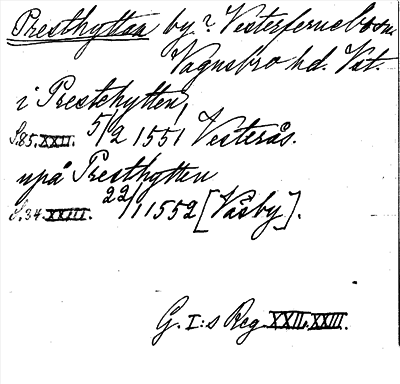 Presthyttan by? Vesterfernebo sn
Vagnsbro hd. Vst.
i Prestehytten,
S.85. XXII. 5/2 1551 Vesterås.
upå Presthytten
S.34. XXIII. 22/1 1552 [Väsby].
G. I:s Reg. XXII. XXIII.